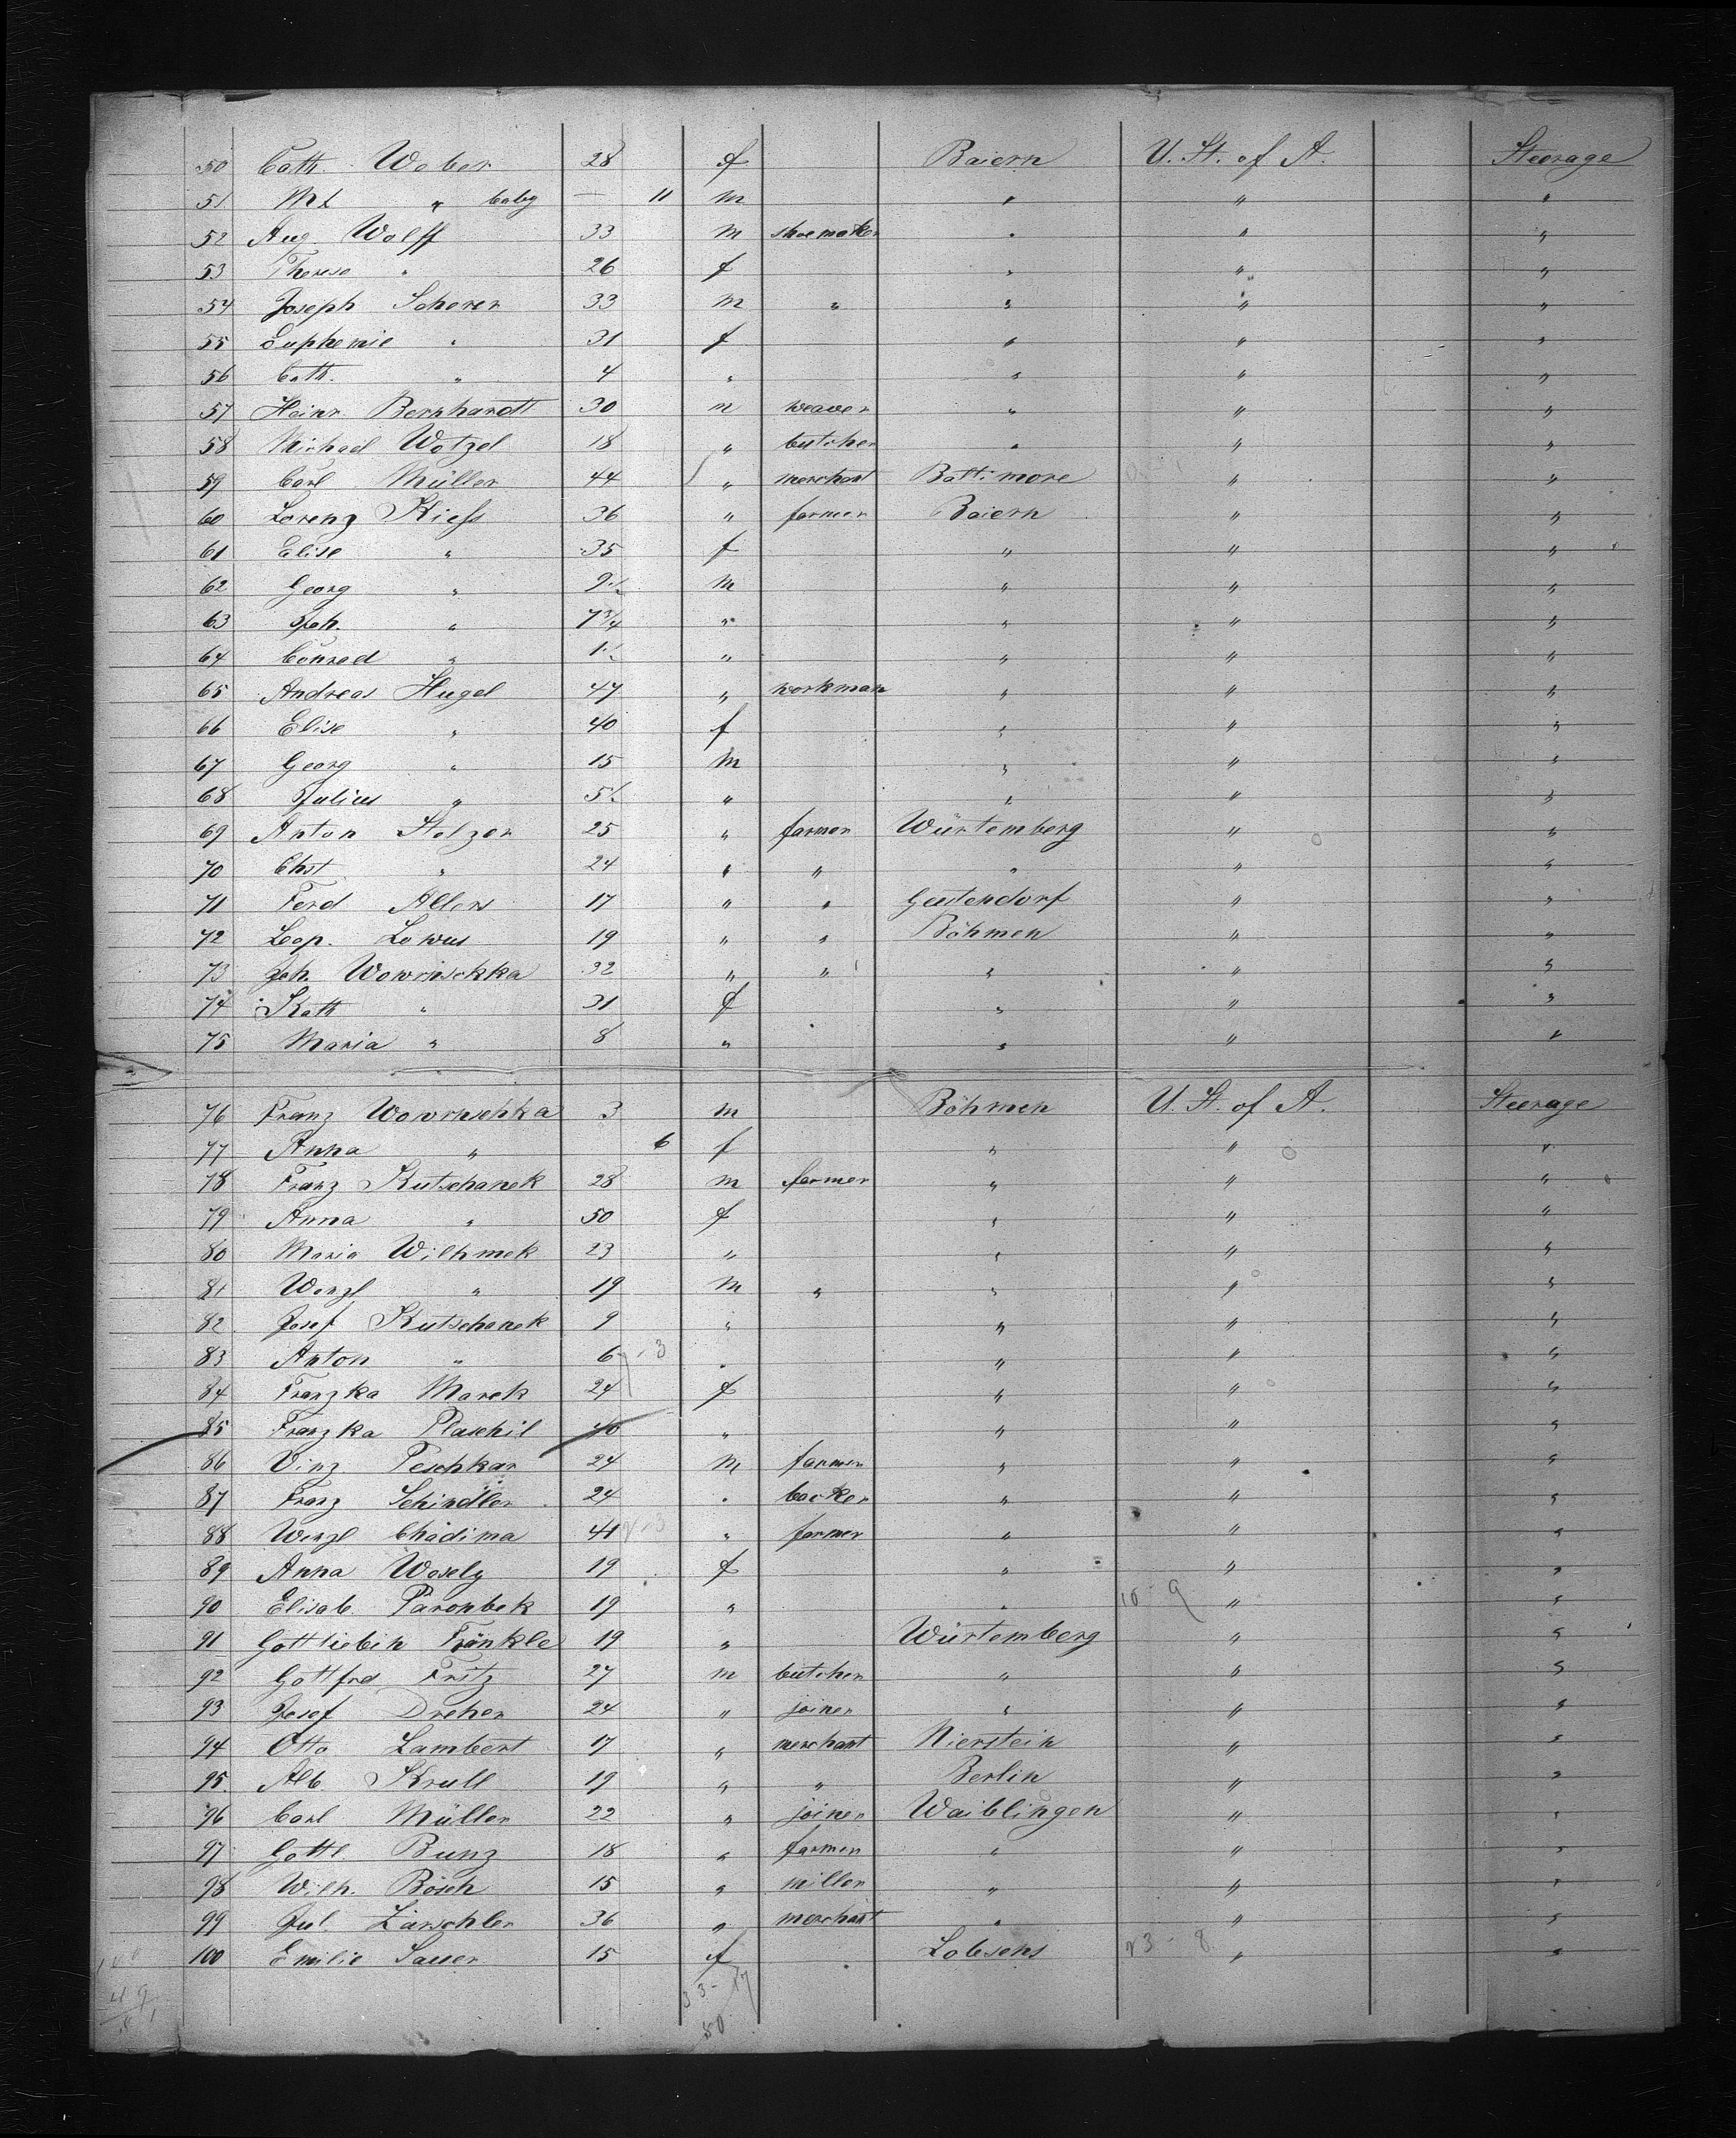 50 Cath. Weber 28 f Baiern U. St. of A. Steerage
51 " baby — 11 m " " "
52 Aug. Wolff 33 m shoemaker " " "
53 Therese " 26 f " " "
54 Joseph Scherer 33 m " " " "
55 Euphemie " 31 f " " "
56 Cath. " 4 " " " "
57 Heinr Bernhardt 30 m weaver " " "
58 Michael Wetzel 18 " butcher " " "
59 Carl Müller 44 " merchant Baltimore " "
60 Lorenz Kiess 36 " farmer Baiern " "
61 Elise " 35 f " " "
62 Georg " 9 m " " "
63 Joh. " 7 3/4 " " " "
64 Conrad " 1 " " " "
65 Andreas Hugel 47 " workman " " "
66 Elise " 40 f " " "
67 Georg " 15 m " " "
68 Julius " 5 " " " "
69 Anton Stelzer 25 " farmer Würtemberg " "
70 Chst " 24 " " " " "
71 Ferd Allers 17 " " Geestendorf " "
72 Leop. Lowus 19 " " Böhmen " "
73 Joh Wowrischkka 32 " " " " "
74 Kath " 31 f " " "
75 Maria " 8 " " " "
76 Franz Wowrischka 3 m Böhmen U. St. of A. Steerage
77 Anna " 6 f " " "
78 Franz Kutschanek 28 m farmer " " "
79 Anna " 50 f " " "
80 Maria Wilhmek 23 " " " "
81 Wenzl " 19 m " " " "
82 Josef Kutschanek 9 " " " "
83 Anton " 6 " " " "
84 Franzka Marek 24 f " " "
85 Franzka Plaschil 40 " " " "
86 Vinz. Peschkar 24 m farmer " " "
87 Franz Schindler 24 " backer " " "
88 Wenzl Chadima 41 " farmer " " "
89 Anna Wesely 19 f " " "
90 Elisab. Paronbek 19 " " 10 - 9 " "
91 Gottliebin Fränkle 19 " Würtemberg " "
92 Gottfrd Fritz 27 m butcher " " "
93 Josef Dreher 24 " joiner " " "
94 Otto Lambert 17 " merchant Nierstein " "
95. Alb. Krull 19 " " Berlin " "
96 Carl Müller 22 " joiner Waiblingen " "
97 Gottl. Bunz 18 " farmer " " "
98 Wilh. Bösch 15 " miller " " "
99 Jul. Zärschler 36 " merchant " " "
100 Emilie Sauer 15 f Lobsens 23 - 8 " "
33 - 17
50